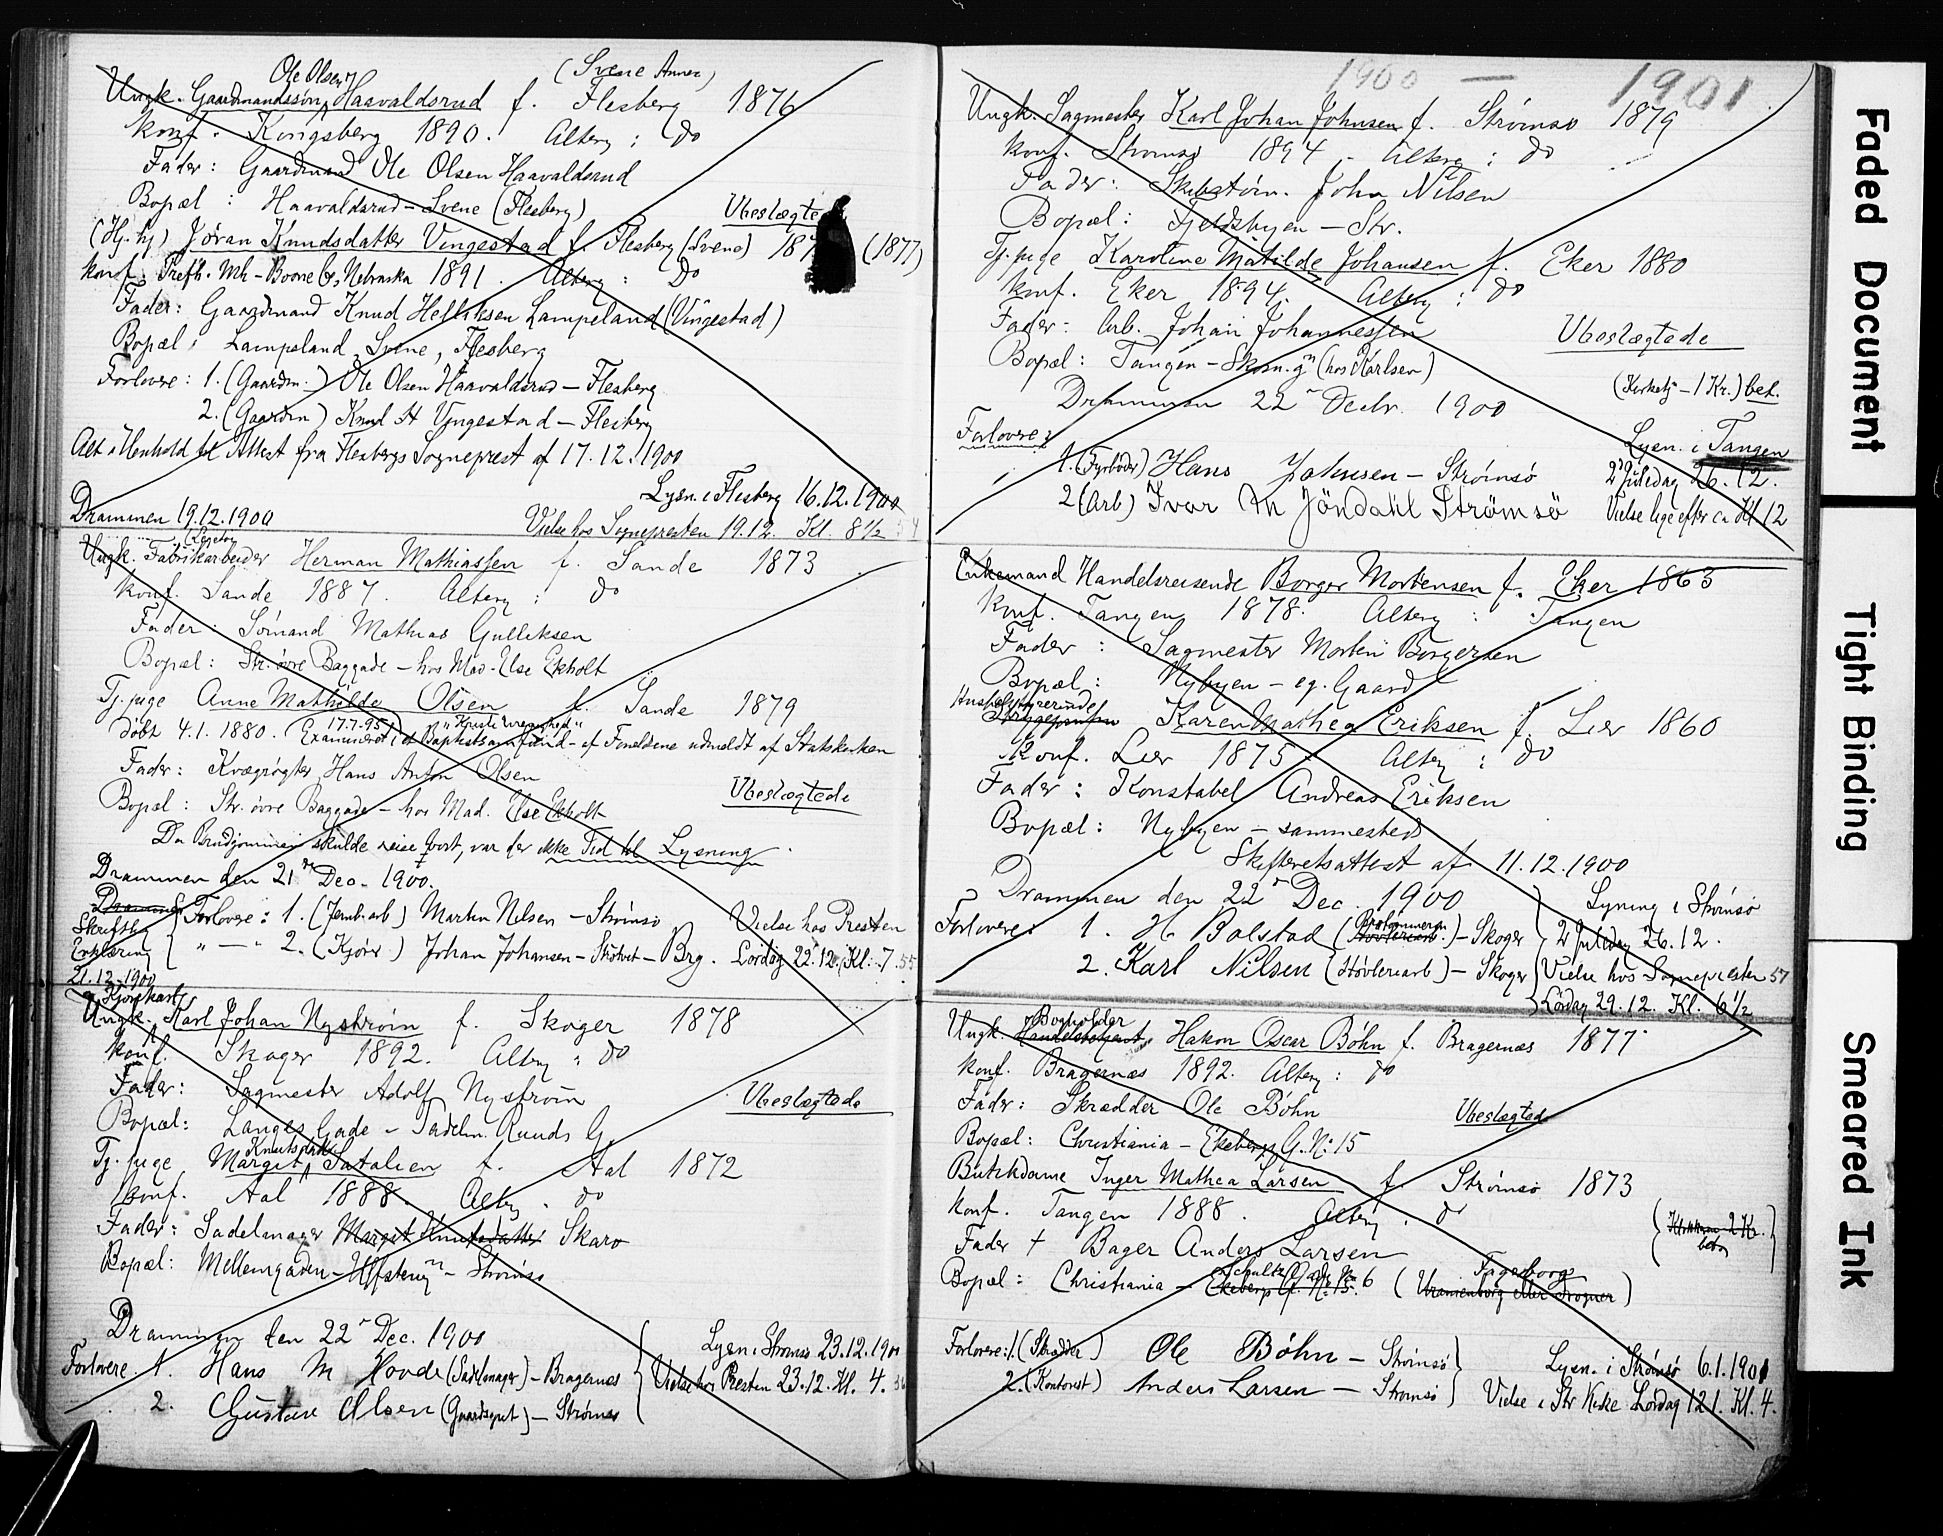 Ole Olsen (Svene Annex)
Ungk. Gaardmandssøn Haavaldsrud f. Flesberg 1876
konf. Kongsberg 1890. Alterg: do
Fader: Gaardmand Ole Olsen Haavaldsrud
Bopæl: Haavaldsrud - Svene (Flesberg) Ubeslægtede
Jøran Knudsdatter Vingestad f. Flesberg (Svene) 187 (1877)
konf. Boone Co, Nebraska 1891. Alterg: do
Fader: Gaardmand Knud Helliksen Lampeland (Vingestad)
Bopæl: Lampeland, Svene, Flesberg
Forlovere: 1. (Gaardm.) Ole Olsen Haavaldsrud - Flesberg
2. (Gaardm) Knud H Vingestad - Flesberg
Alt i Henhold til Attest fra Flesbergs Sogneprest af 17.12.1900
Lysn. i Flesberg 16.12.1900
Drammen 19.12.1900 Vielse hos Sognepresten 19.12. Kl. 8½ 54
Ungk. Fabrikarbeider Herman Mathiassen f. Sande 1873
konf. Sande 1887. Alterg: do
Fader: Sømand Mathias Gulliksen
Bopæl: Str. øvre Baggade - hos Mad. Else Ekholt
Tj. pige Anne Mathilde Olsen f. Sande 1879
Døbt 4.1.1880. 17.7.95 Baptistsamfund - af Forældrene udmeldt af Statskirken
Fader: Kvægrøgter Hans Anton Olsen
Ubeslægtede
Bopæl: Str. øvre Baggade - hos Mad. Else Ekholt
Da Brudgommen skulde reise bort, var der ikke Tid til Lysning.
Drammen den 21de Dec. 1900.
Skriftlig Erklæring 21.12.1900
Forlovere: 1. (Jernb.arb) Martin Nilsen - Strømsø Vielse hos Presten
" — " 2. (Kjørek.) Johan Johansen - Brg. Lørdag 22.12. Kl. 7. 55
Kjørekarl
Ungk. Karl Johan Nystrøm f. Skoger 1878
konf. Skoger 1892. Alterg: do
Fader: Sagmester Adolf Nystrøm
Ubeslægtede
Bopæl: Langes Gade - Sadelm. Ruuds G.
Knutsdatter
Tj. pige Margit Satalien f. Aal 1872
konf. Aal 1888. Alterg. do
Fader: Sadelmager Margit Knutsdatter Skaro
Bopæl: Mellemgaden - Strømsø
Drammen den 22 Dec. 1900
Lysn. i Strømsø 23.12.1900
Forlovere 1. Hans M Hovde (Sadelmager) - Bragernæs Vielse hos Presten 23.12. Kl. 4. 56
2. Gustav Olsen (Gaardsgut) - Strømsø
1900 — 1901
Ungk. Sagmester Karl Johan Johnsen f. Strømsø 1879
konf. Strømsø 1894. Alterg: do
Fader: Skibstøm. John Nilsen
Bopæl: Fjeldbyen - Str.
Tj. pige Karoline Matilde Johansen f. Eker 1880
konf. Eker 1894. Alterg: do
Fader: Arb. Johan Johannessen
Ubeslægtede
Bopæl: Tangen - Skom. g. (hos Karlsen)
(Kirketj - 1 Kr.) bet.
Drammen 22 Decbr. 1900
Forlovere:
Lysn. i Tangen
1. (Fyrbøder) Hans Johnsen - Strømsø 2 Juledag 26.12.
2 (Arb) Ivar M Jöndahl Strømsö Vielse lige efter ca Kl 12
Enkemand Handelsreisende Borger Mortensen f. Eker 1863
konf. Tangen 1878. Alterg: Tangen
Fader: Sagmester Morten Borgersen
Bopæl: Nybyen - eg. Gaard
Husholderinde
Karen Mathea Eriksen f. Lier 1860
Konf. Lier 1875 Alterg: do
Fader: Konstabel Andreas Eriksen
Bopæl: Nybyen - sammesteds
Skifteretsattest af 11.12.1900
Drammen den 22 Dec. 1900 Lysning i Strømsø
Forlovere: 1. H. Bolstad - Skoger 2 Juledag 26.12.
2. Karl Nilsen (Høvleriarb) - Skoger Vielse hos Sognepresten 57
Lørdag 29.12. Kl. 6½
Bogholder
Ungk. Handelsbetjent Hakon Oscar Bøhn f. Bragernæs 1877
konf. Bragernæs 1892. Alterg: do
Fader: Skrædder Ole Bøhn
Ubeslægtede
Bopæl: Christiania - Ekebergs G. No 15
Butikdame Inger Mathea Larsen f. Strømsø 1873
konf. Tangen 1888. Alterg. do
Fader † Bager Anders Larsen
Schultz Gade No 6 Fagerborg
Bopæl: Christiania - Ekebergs G. No 15. (Uranienborg eller Frogner)
Forlovere: 1. (Skrædder) Ole Bøhn - Strømsø Lysn. i Strømsø 6.1.1901
2. (Kontorist) Anders Larsen - Strømsø Vielse i Str Kirke Lørdag 12.1. Kl. 4.
Faded Document
Tight Binding
Smeared Ink